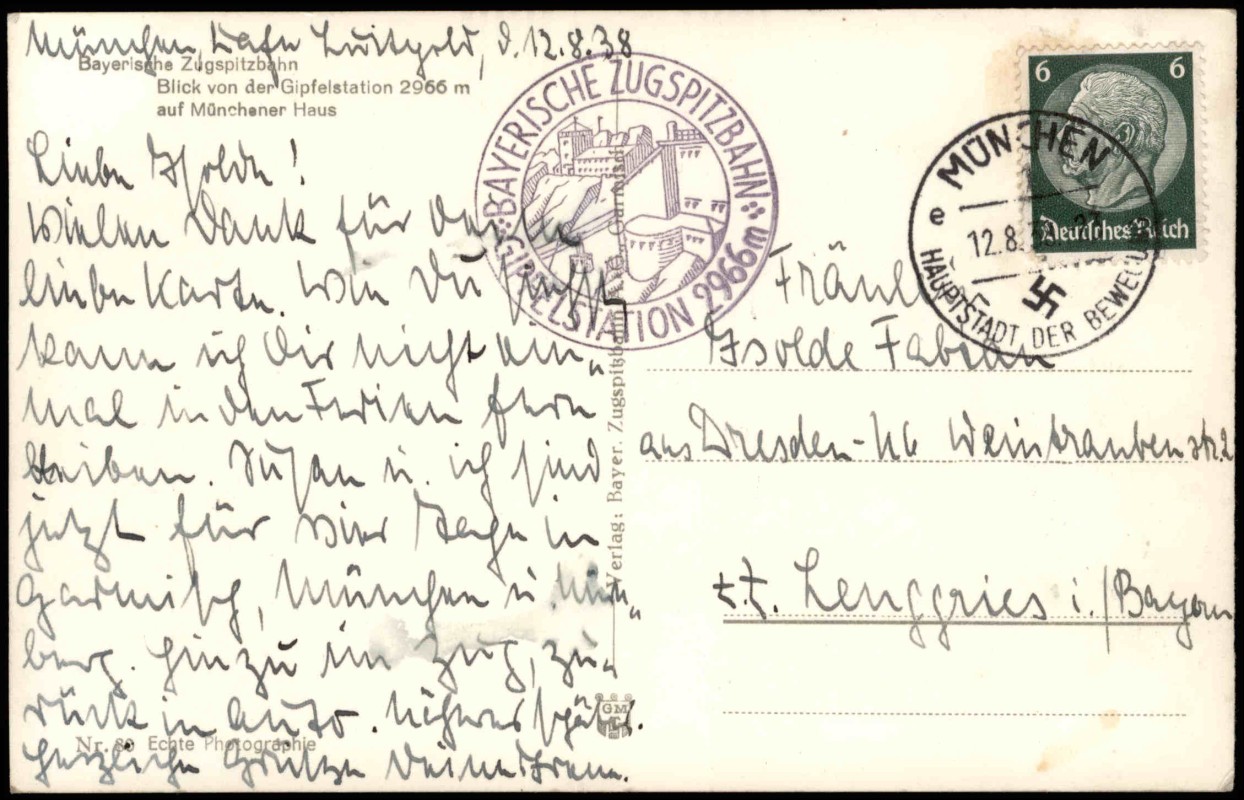 München, Café Luitpold, d. 12.8.38
Bayerische Zugspitzbahn
Blick von der Gipfelstation 2966 m
auf Münchener Haus
Liebe Isolde!
Vielen Dank für Deine
liebe Karte. Wie Du siehst
kann ich Dir nicht ein„
mal in den Ferien fern
bleiben. Susan u. ich sind
jetzt für vier Tage in
Garmisch, München u. Nürn„
berg. Hinzu im Zug, zu„
rück in Auto. Näheres später.
Herzliche Grüße Deine Irene.
Nr. 80 Echte Photographie
BAYERISCHE ZUGSPITZBAHN
GIPFELSTATION 2966m
Verlag: Bayer. Zugspitzbahn Garmisch
GM
6 6
Deutsches Reich
MÜNCHEN
e
12.8.38
HAUPTSTADT DER BEWEGUNG
Fräulein
Isolde Fabian
aus Dresden-N6 Weintraubenstr. 2
z.Z. Lenggries i./Bayern